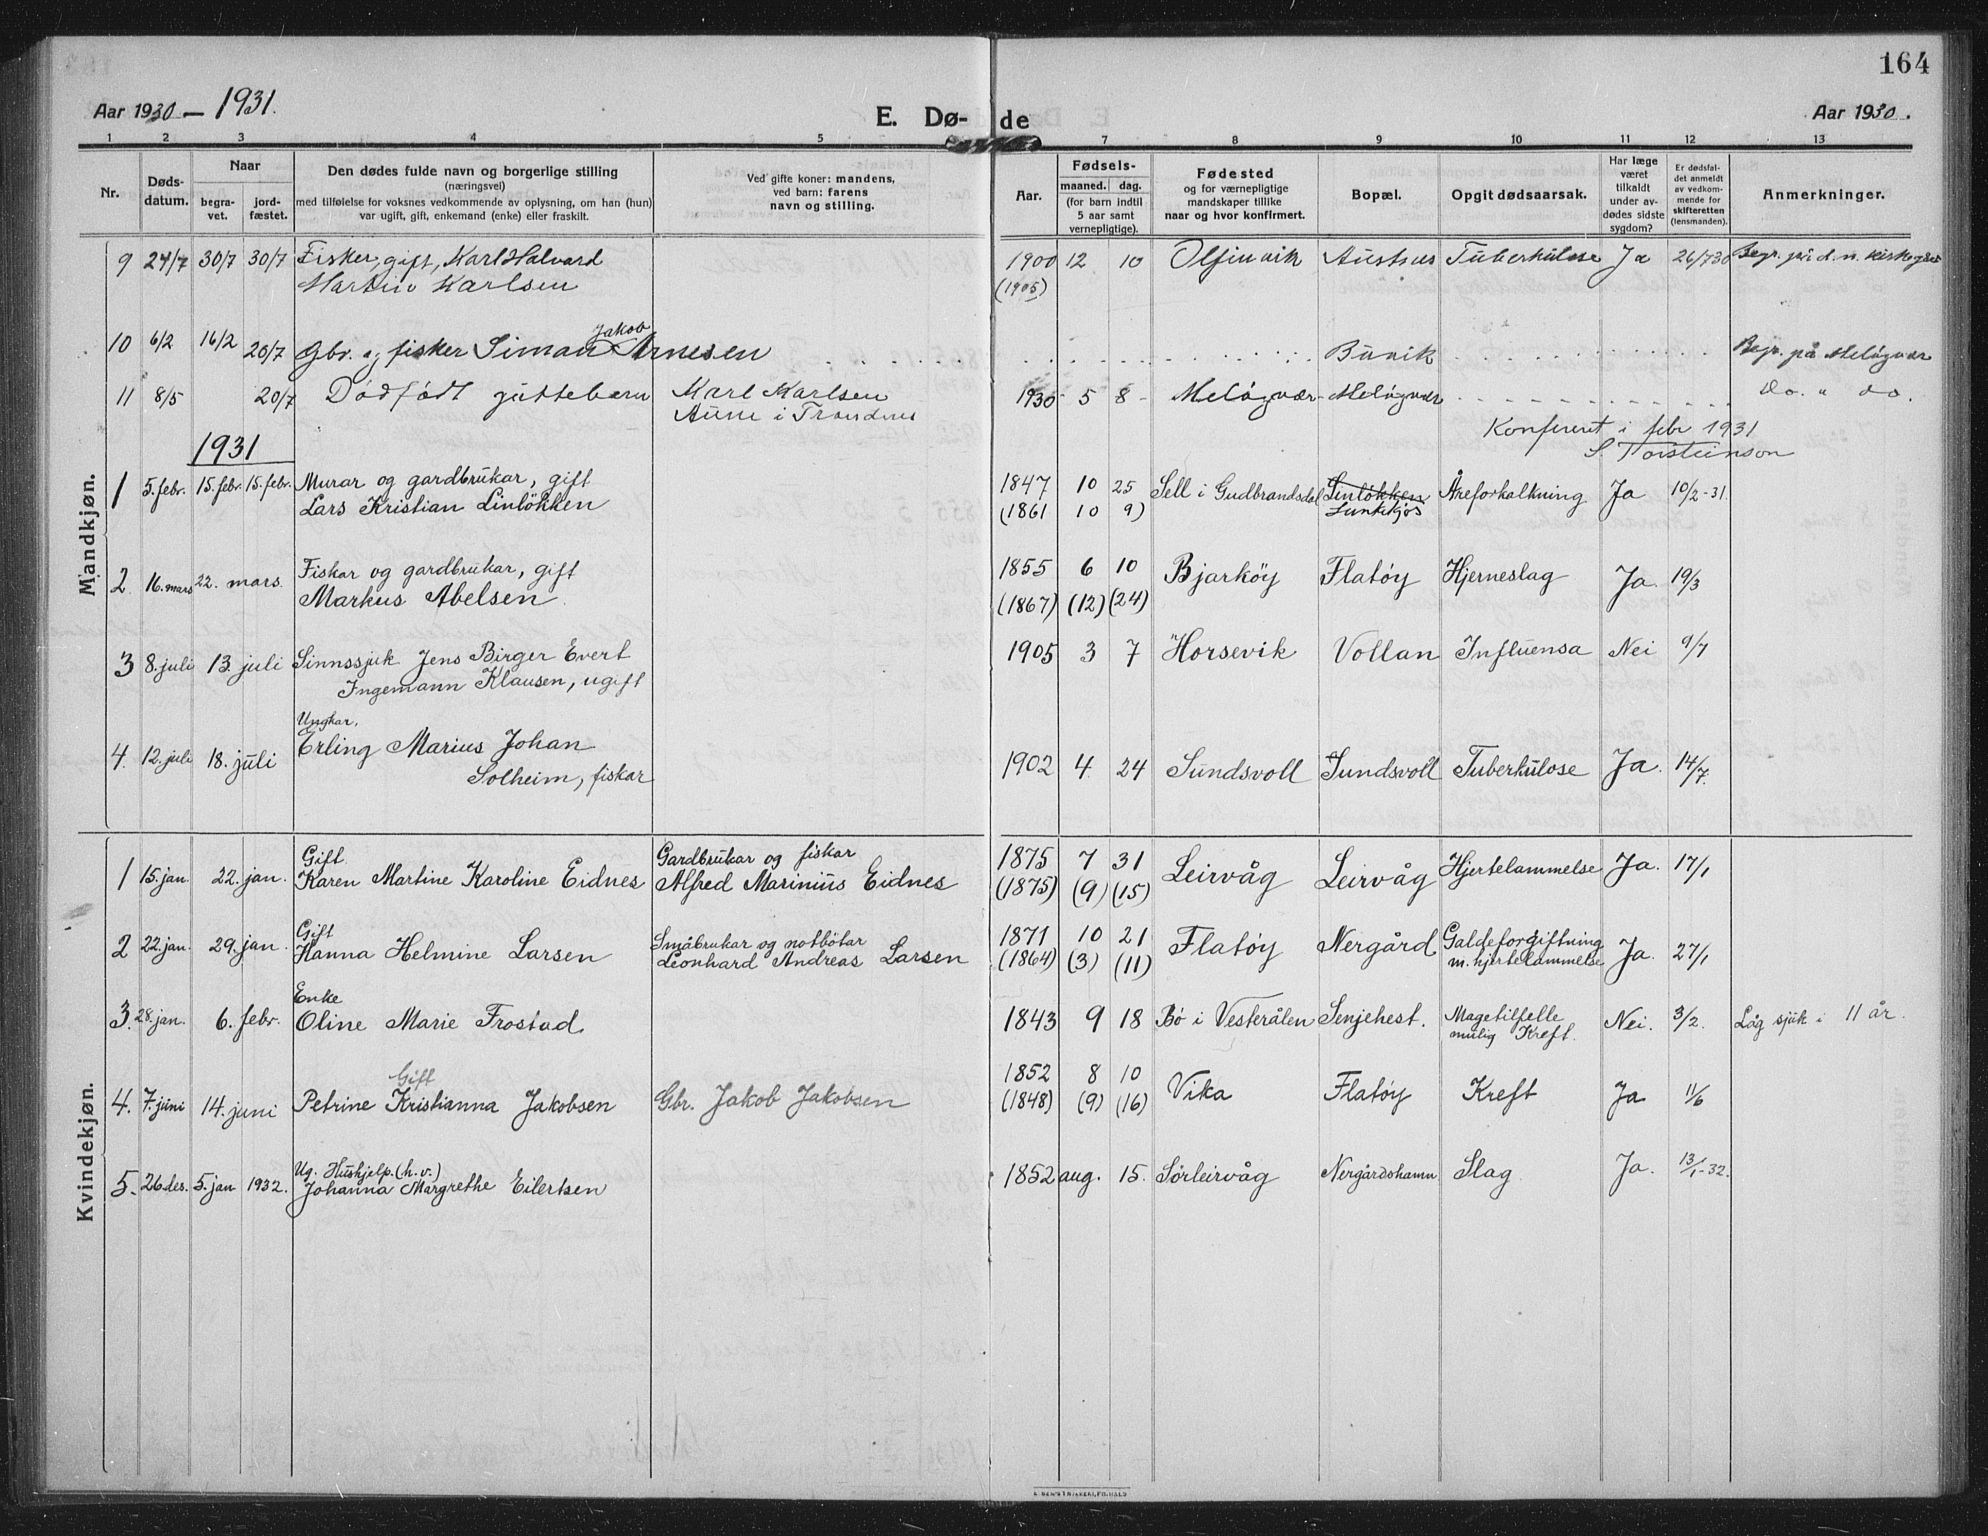 164
Aar 1930 — 1931.
E. Dø-
de
Aar 1930.
1 2 3 4 5 7 8 9 10 11 12 13
Nr.
Døds-
datum.
Naar
begra-
vet.
jord-
fæstet.
Den dødes fulde navn og borgerlige stilling
(næringsvei)
med tilføielse for voksnes vedkommende av oplysning, om han (hun)
var ugift, gift, enkemand (enke) eller fraskilt.
Ved gifte koner: mandens,
ved barn: farens
navn og stilling.
Aar.
Fødsels-
maaned. dag.
(for barn indtil
5 aar samt
vernepligtige).
Fødested
og for værnepligtige
mandskaper tillike
naar og hvor konfirmert.
Bopæl.
Opgit dødsaarsak.
Har læge
været
tilkaldt
under av-
dødes sidste
sygdom?
Er dødsfal-
det anmeldt
av vedkom-
mende for
skifteretten
(lensmanden).
Anmerkninger.
Mandkjøn.
9 24/7 30/7 30/7 Fisker, gift, Karl Halvard 1900 12 10 Tuberkulose Ja 26/7 30
Martin Karlsen (1905)
Jakob
10 6/2 16/2 20/7 Gbr. og fisker Simon Arnesen Buvik Begr. på Meløyvær
11 8/5 20/7 Dødfødt guttebarn Karl Karlsen 1930 5 8 Meløyvær Meløyvær do. " do.
Aune i Trondenes
Konferert i febr 1931
S. Torsteinson
1931
1 5. febr. 15. febr. 15. febr. Murar og gardbrukar, gift 1847 10 25 Sell i Gudbrandsdal Linløkken Åreforkalkning Ja 10/2-31.
Lars Kristian Linløkken (1861 10 9) Lunkkjos
2 16. mars 22. mars. Fiskar og gardbrukar, gift 1855 6 10 Bjarköy Flatöy Hjerneslag Ja. 19/3
Markus Abelsen. (1867) (12) (24)
3 8. juli 13 juli Sinnssjuk Jens Birger Evert 1905 3 7 Horsevik Vollan Influensa Nei 9/7
Ingemann Klausen, ugift
Ungkar,
4. 12. juli 18. juli Erling Marius Johan 1902 4. 24 Sundsvoll Sundsvoll Tuberkulose Ja. 14/7.
Solheim, fiskar
Kvindekjøn.
Gift Gardbrukar og fiskar
1 15. jan. 22. jan. Karen Martine Karoline Eidnes Alfred Marinius Eidnes 1875 7 31 Leirvåg Leirvåg Hjertelammelse Ja. 17/1
(1875) (9) (15)
Gift Småbrukar og notbötar
2 22. jan. 29. jan. Hanna Helmine Larsen Leonhard Andreas Larsen 1871 10 21 Flatöy Nergård Galdeforgiftning Ja. 27/1
(1864) (3) (11) m. hjertelammelse
Enke
3. 28. jan. 6. febr. Oline Marie Frostad 1843 9 18 Bö i Vesterålen Senjehest. Magetilfelle Nei. 3/2. Låg sjuk i 11 år.
mulig Kreft.
Gift
4. 7. juni 14. juni Petrine Kristianna Jakobsen Gbr. Jakob Jakobsen 1852 8 10 Vika Flatöy Kreft Ja 11/6
(1848) (9) (16)
Ug. Hushjelp. (h.v.)
5. 26 des. 5. jan 1932. Johanna Margrethe Eilertsen 1852 aug. 15. Sørleirvåg Nergårdshamn Slag Ja. 13/1-32.